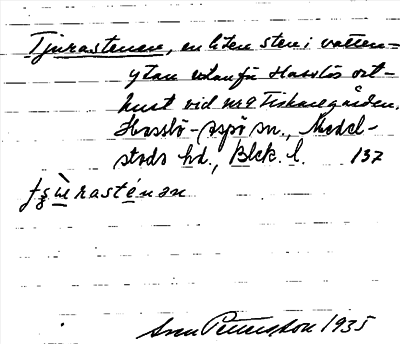 Tjurastenen, en liten sten i vatten-
ytan utanför Hasslös ost-
kust vid nr 9 Fiskaregården.
Hasslö-Aspö sn., Medel-
stads hd., Blek. l. 137
rasténən
Sven Pettersson 1935